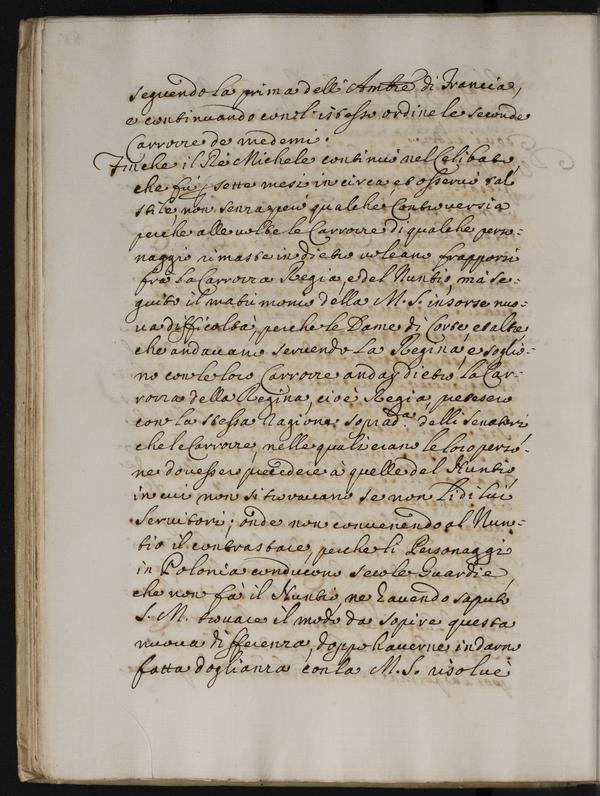 seguendo la prima dell' Ambr̃e di Francia,
e continuando con l'istesso ordine le seconde
Carrozze de medemi.
Finche il Rè Michele continuò nel Celibato,
che fù sette mesi in circa et osservò tal
stile, non senza però qualche Controversia
perche alle volte le Carrozze di qualche perso-
naggio rimaste in dietro voleano frapporsi
frà la Carrozza Regia, e del Nuntio, mà se-
guito il matrimonio della M. S. insorse nuo-
va difficoltà, perche le Dame di Corte, et altre
che andavano servendo la Regina, e soglio-
no con le loro Carrozze andar dietro la Car-
rozza della Regina, cioè Regia, pretesero
con la stessa Ragione soprad.a delli Senatori
che le Carrozze, nelle quali erano le loro perso-
ne dovessero precedere à quelle del Nuntio
in cui non si trovavano se non li di lui
servitori; onde non convenendo al Nun-
tio il contrastare, perche li Personaggi
in Polonia conducono seco le Guardie,
che non fà il Nuntio, ne havendo saputo
S. M. trovare il modo da sopire questa
nuova differenza, doppo haverne indarno
fatta doglianza con la M. S. risolvè